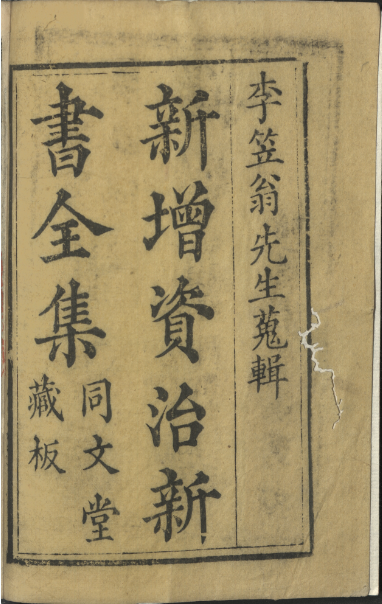 李笠翁先生蒐輯
新增資治新
書全集
同文堂
藏板